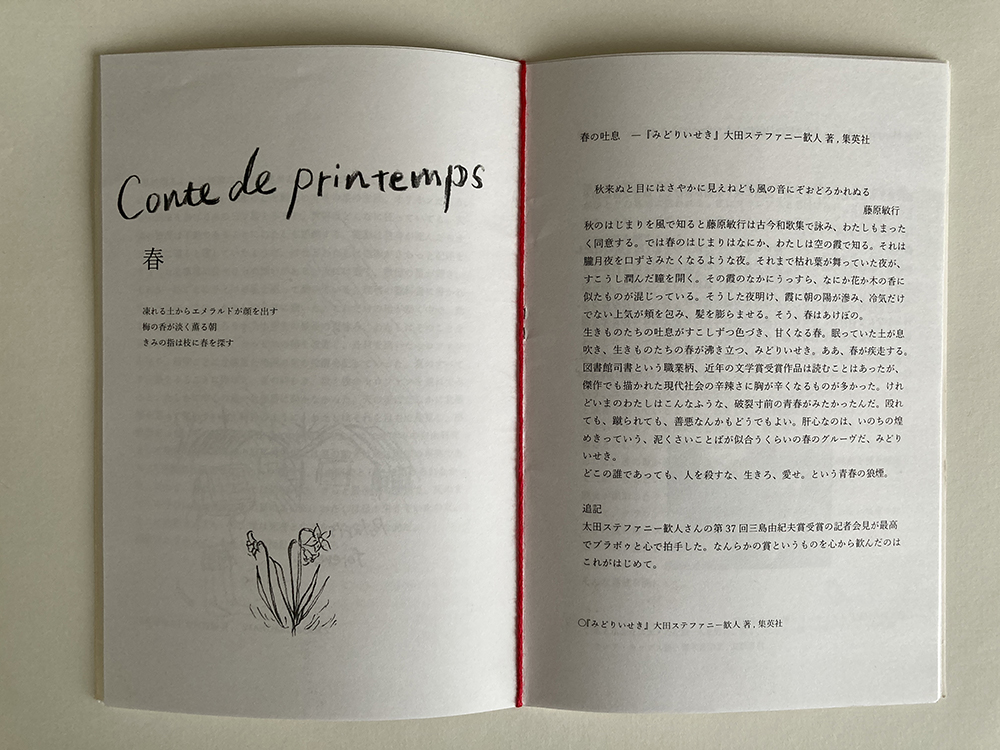 Conte de printemps
春
凍れる土からエメラルドが顔を出す
梅の香が淡く薫る朝
きみの指は枝に春を探す
春の吐息 ―『みどりいせき』大田ステファニー歓人 著 , 集英社
秋来ぬと目にはさやかに見えねども風の音にぞおどろかれぬる
藤原敏行
秋のはじまりを風で知ると藤原敏行は古今和歌集で詠み、わたしもまった
く同意する。では春のはじまりはなにか、わたしは空の霞で知る。それは
朧月夜を口ずさみたくなるような夜。それまで枯れ葉が舞っていた夜が、
すこうし潤んだ瞳を開く。その霞のなかにうっすら、なにか花か木の香に
似たものが混じっている。そうした夜明け、霞に朝の陽が滲み、冷気だけ
でない上気が頬を包み、髪を膨らませる。そう、春はあけぼの。
生きものたちの吐息がすこしずつ色づき、甘くなる春。眠っていた土が息
吹き、生きものたちの春が沸き立つ、みどりいせき。ああ、春が疾走する。
図書館司書という職業柄、近年の文学賞受賞作品は読むことはあったが、
傑作でも描かれた現代社会の辛辣さに胸が辛くなるものが多かった。けれ
どいまのわたしはこんなふうな、破裂寸前の青春がみたかったんだ。殴れ
ても、蹴られても、善悪なんかもどうでもよい。肝心なのは、いのちの煌
めきっていう、泥くさいことばが似合うくらいの春のグルーヴだ、みどり
いせき。
どこの誰であっても、人を殺すな、生きろ、愛せ。という青春の狼煙。
追記
太田ステファニー歓人さんの第 37 回三島由紀夫賞受賞の記者会見が最高
でブラボゥと心で拍手した。なんらかの賞というものを心から歓んだのは
これがはじめて。
○『みどりいせき』大田ステファニー歓人 著 , 集英社